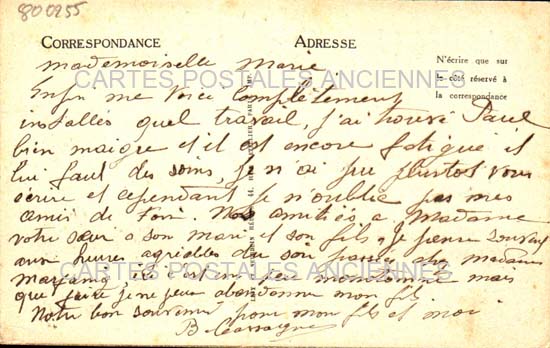 800255
CORRESPONDANCE
ADRESSE
N'écrire que sur
le côté réservé à
la correspondance
mademoiselle Marie
CARTES POSTALES ANCIENNES
Enfin me voici complètement
installés quel travail, j'ai trouvé Paul
bien maigre et il est encore fatigué il
lui faut des soins, je n'ai pu plustot vous
écrire et cependant je n'oublie pas mes
amis de Nos amitiés a Madame
votre sœur a son mari et son fils, je pense souvent
aux heures agréables du soir passé chez madame
ici c'est un peu monotone mais
CARTES POSTALES ANCIENNES
que faire je ne peux abandonner mon fils
Notre bon souvenir pour mon fils et moi
B